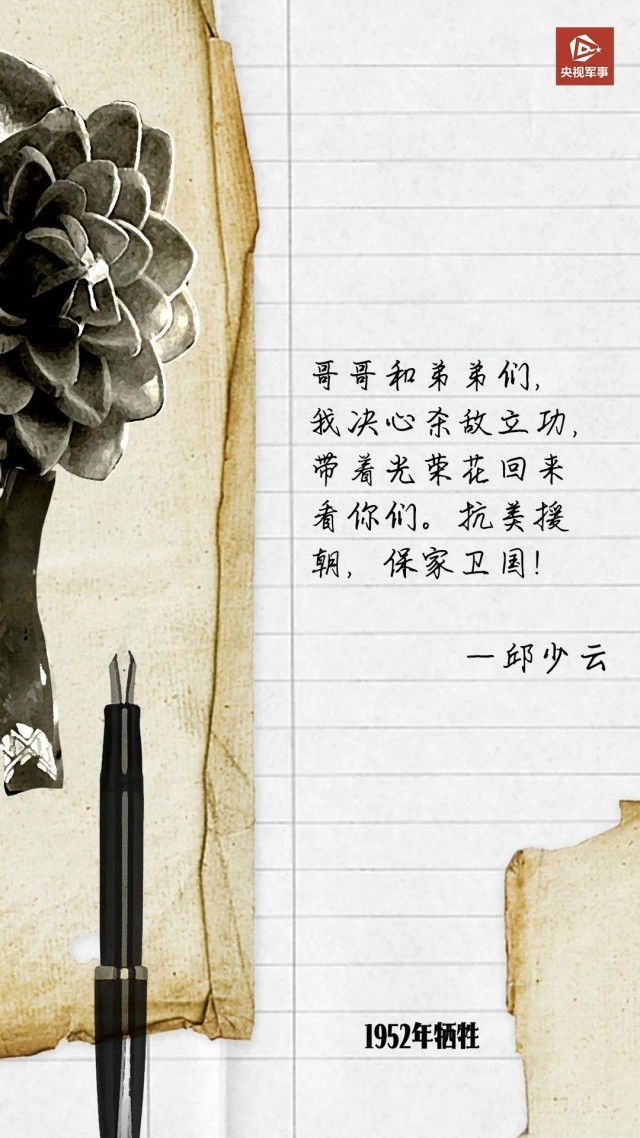 央视军事
哥哥和弟弟们,
我决心杀敌立功,
带着光荣花回来
看你们。抗美援
朝,保家卫国!
—邱少云
1952年牺牲